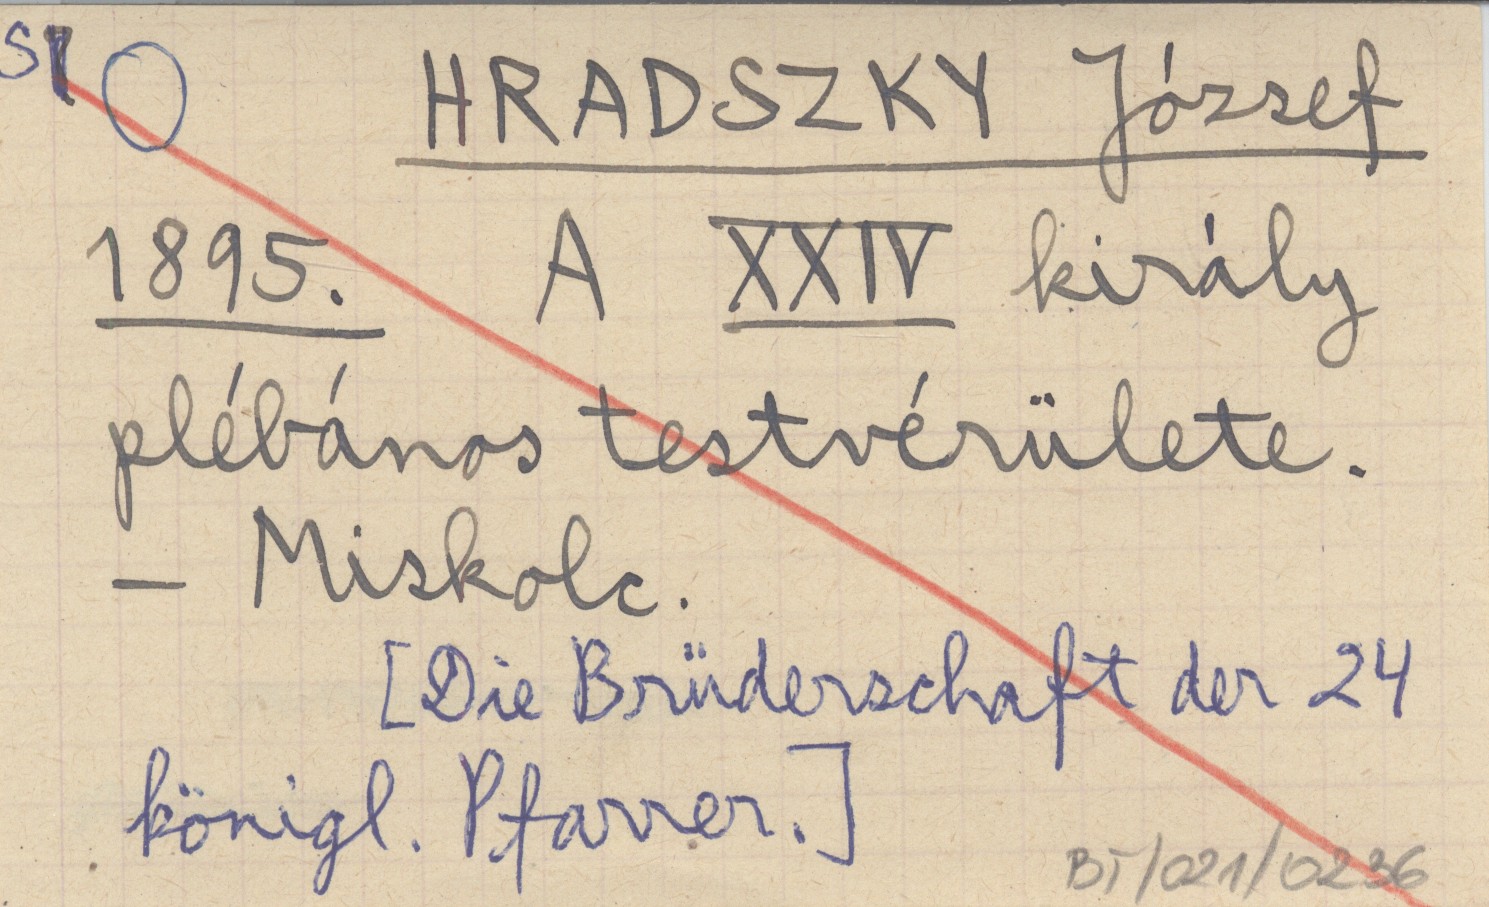 HRADSZKY József
1895. A XXIV király
plébános testvérülete.
— Miskolc.
[Die Brüderschaft der 24
königl. Pfarrer.]
BT/021/0236